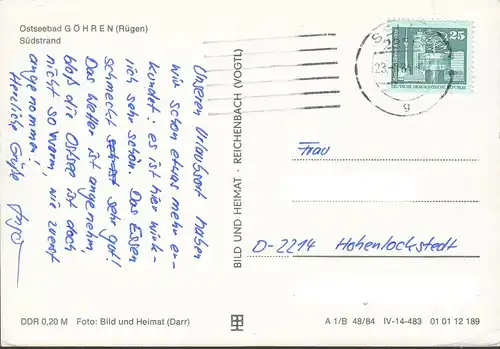 Ostseebad GÖHREN (Rügen)
Südstrand
Unseren Urlaubsort haben
wir schon etwas mehr er-
kundet: es ist hier wirk-
lich sehr schön. Das Essen
schmeckt sehr gut!
Das Wetter ist angenehm
bloß die Ostsee ist doch
nicht so warm, wie zuerst
angenommen!
Herzliche Grüße
BILD UND HEIMAT · REICHENBACH (VOGTL)
25
DEUTSCHE DEMOKRATISCHE REPUBLIK
g
Frau
D-2214 Hohenlockstedt
DDR 0,20 M Foto: Bild und Heimat (Darr)
A 1/B 48/84 IV-14-483 01 01 12 189